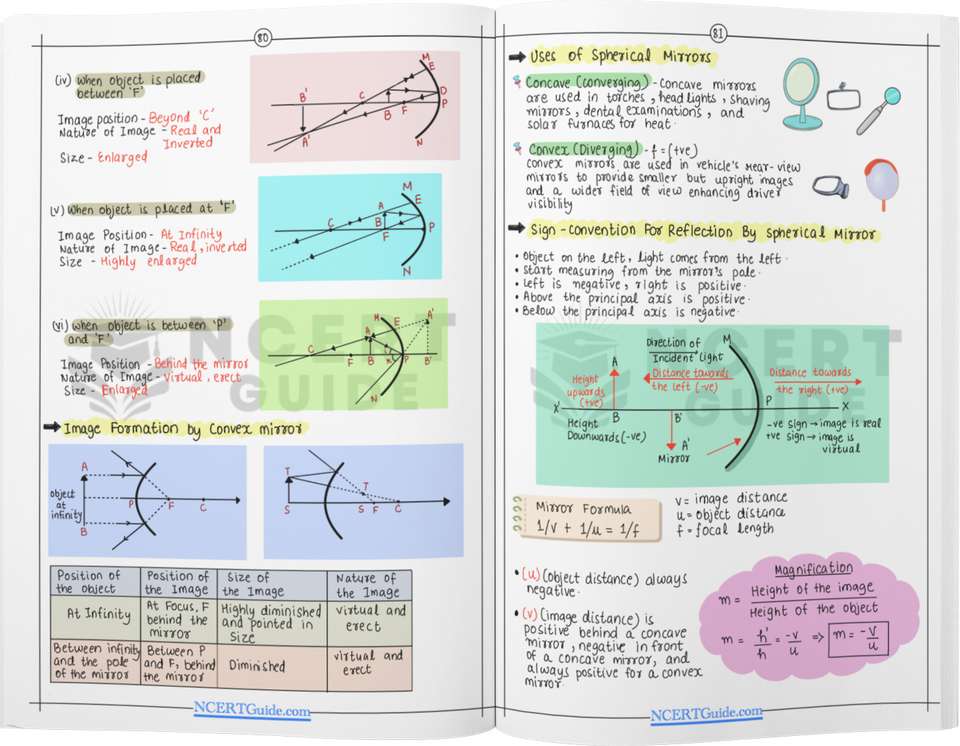 80
(iv) When object is placed
between 'F'
Image position - Beyond 'C'
Nature of Image - Real and
Inverted
Size - Enlarged
M
E
B'
C
D
B
F
P
A'
N
(v) When object is placed at 'F'
Image Position - At Infinity
Nature of Image - Real, inverted
Size - Highly enlarged
M
A
E
B
C
F
P
N
(vi) when object is between 'P'
and 'F'
Image Position - Behind the mirror
Nature of Image - virtual, erect
Size - Enlarged
M
E
A'
A
C
F
B
P
B'
N
Image Formation by Convex mirror
A
object
at
infinity
P
F
C
B
T
T
S
S
F
C
Position of the object
Position of the Image
Size of the Image
Nature of the Image
At Infinity
At Focus, F behind the mirror
Highly diminished and pointed in Size
virtual and erect
Between infinity and the pole of the mirror
Between P and F, behind the mirror
Diminished
virtual and erect
NCERTGuide.com
81
Uses of Spherical Mirrors
Concave (Converging) - Concave mirrors
are used in torches, head lights, shaving
mirrors, dental examinations, and
solar furnaces for heat.
Convex (Diverging) - f = (+ve)
Convex mirrors are used in vehicle's rear-view
mirrors to provide smaller but upright images
and a wider field of view enhancing driver
visibility
Sign-Convention For Reflection By Spherical Mirror
• Object on the left, light comes from the left.
• Start measuring from the mirror's pole.
• Left is negative, right is positive.
• Above the principal axis is positive.
• Below the principal axis is negative.
M
Direction of
Incident light
A
Distance towards
the left (-ve)
Distance towards
the right (+ve)
Height
upwards
(+ve)
X'
B
B'
P
X
Height
Downwards (-ve)
A'
Mirror
-ve sign → image is real
+ve sign → image is
virtual
Mirror Formula
1/v + 1/u = 1/f
v = image distance
u = object distance
f = focal length
• (u) (Object distance) always
negative.
• (v) (image distance) is
positive behind a concave
mirror, negative in front
of a concave mirror, and
always positive for a convex
mirror.
Magnification
m = Height of the image / Height of the object
m = h'/h = -v/u => m = -v/u
NCERTGuide.com
NCERT
GUIDE
NCERT
GUIDE